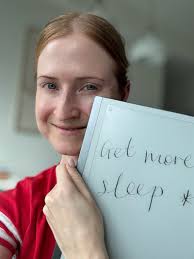 Get more
sleep *